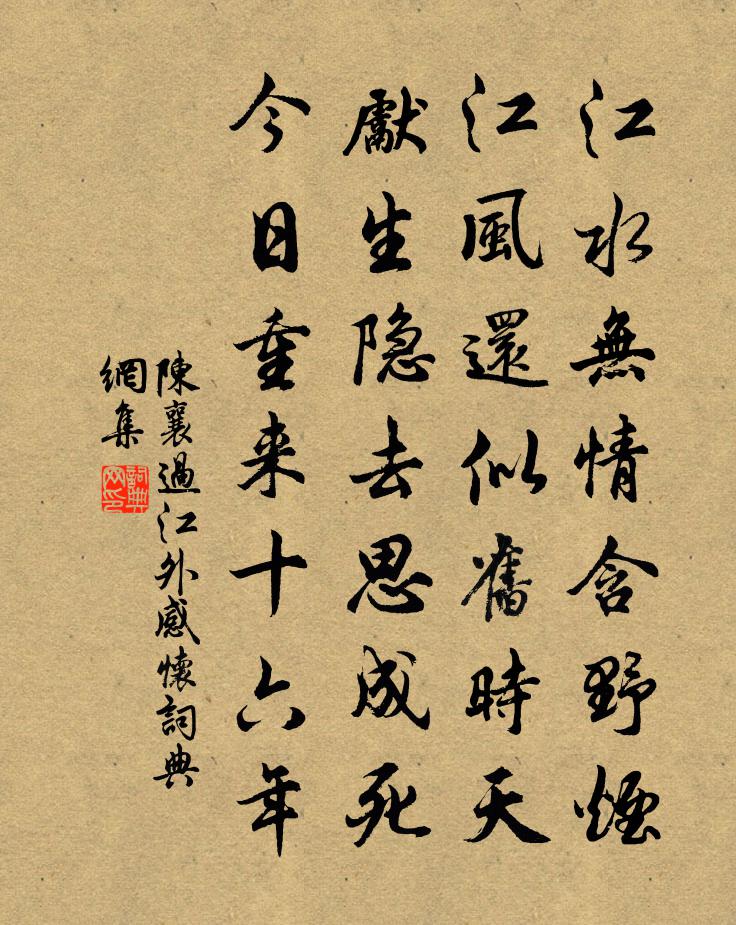 江水無情含野煙
江風還似舊時天
獻生隐去思成死
今日重来十六年
陳襄過江外感懷詞典
網集
詞典
网印